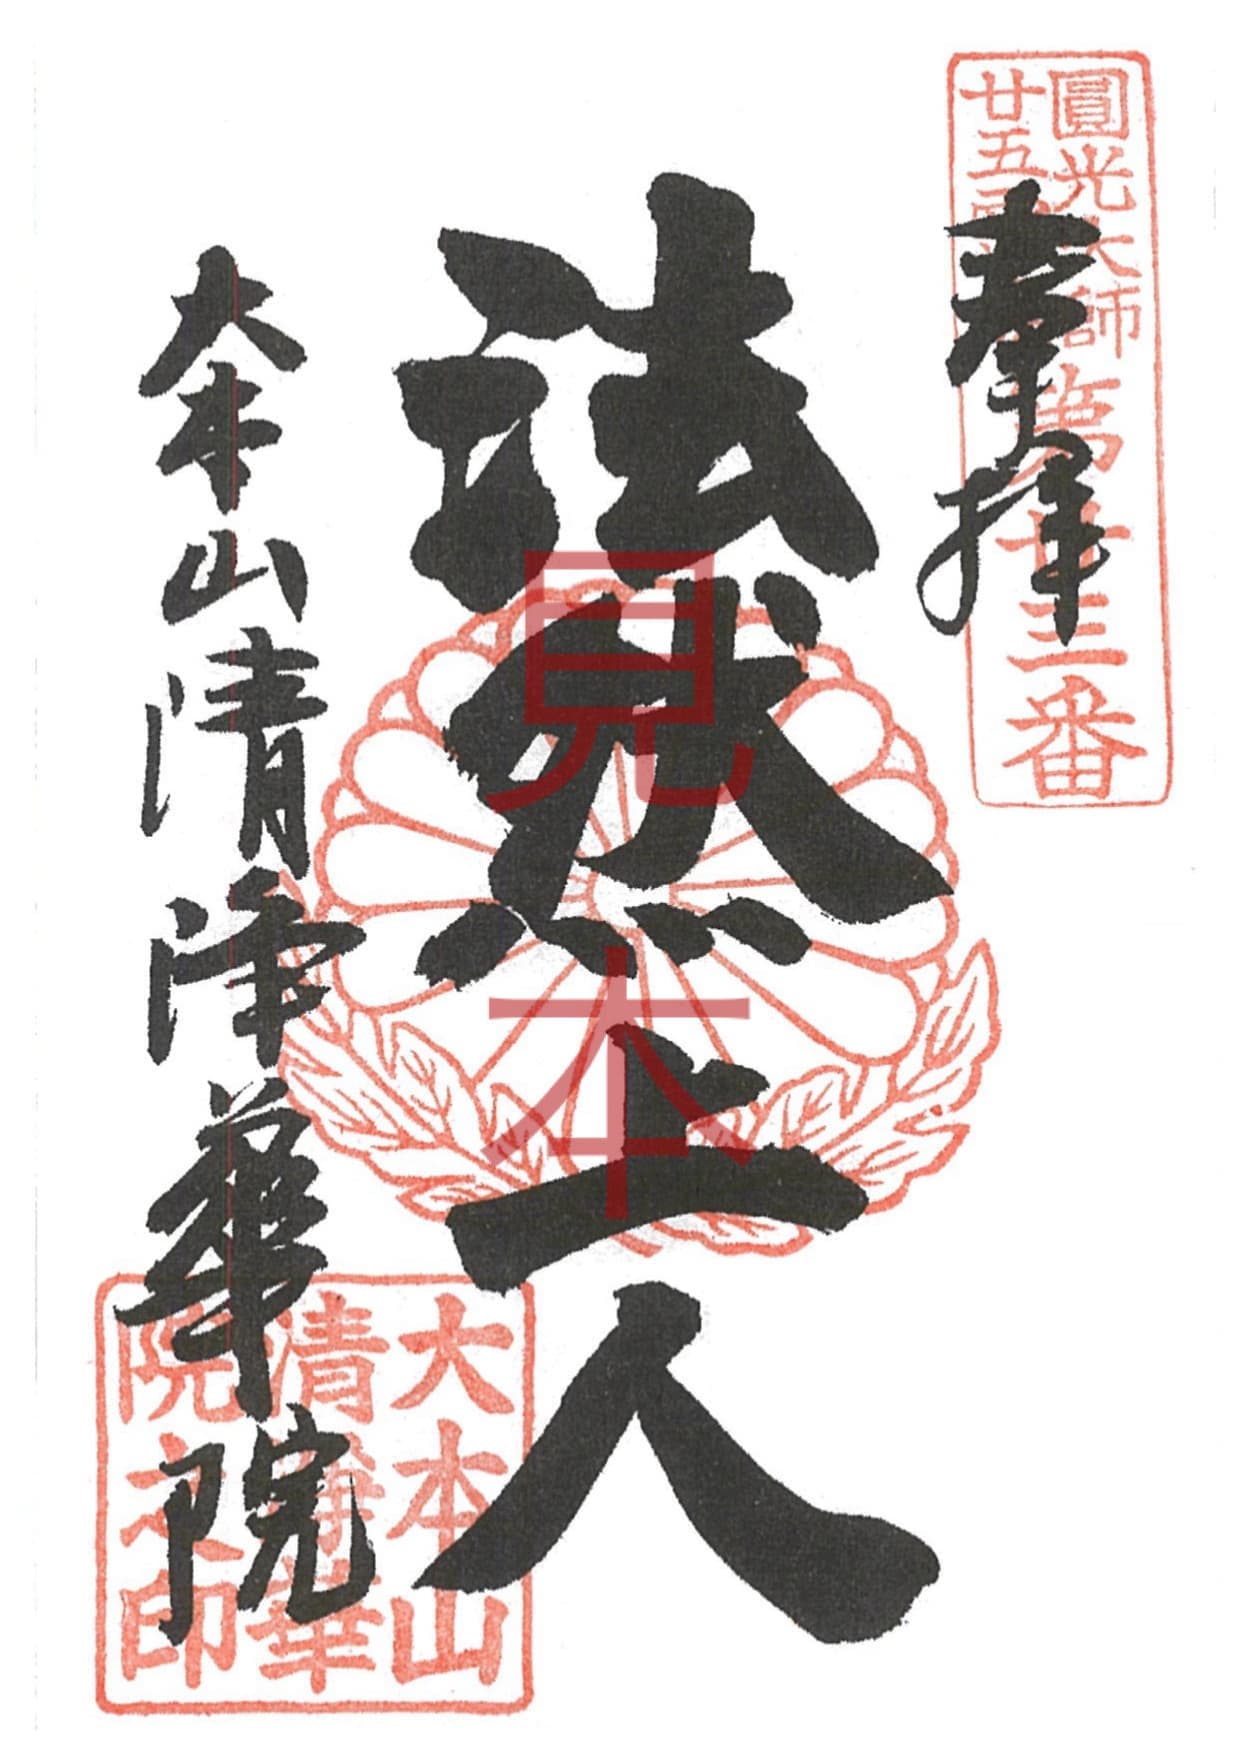 圓光大師
廿五霊
第廿三番
奉拝
法然上人
大本山清浄華院
大本山
清浄華
院之印
見本